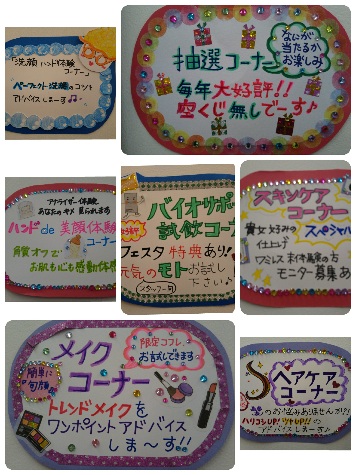 「洗顔ハンド体験
コーナー」
パーフェクト洗顔のコツを
アドバイスしまーす♪
抽選コーナー
なにが
当たるか
お楽しみ
毎年大好評!!
空くじ無しでーす♪
アナライザー体験
あなたのキメ見られまる
ハンドde美顔体験
コーナー
角質オフで
お肌も心も感動体験
バイオサポ
試飲コー
フェスタ特典あり!
元気のモトお試し
下さい♪
スタッフ一同
スキンケア
コーナー
スペシャル
貴女好みの
仕上げ
ワミレス未体験の方
モニター募集あ
メイク
コーナー
限定コフレ、
お試しできます
簡単に
旬顔
トレンドメイクを
ワンポイントアドバイス
しま~す!!
ヘアケア
コーナー
のお悩みありませんか?
ハリコシUP!ツヤUP!!の
アドバイスしまーす♪